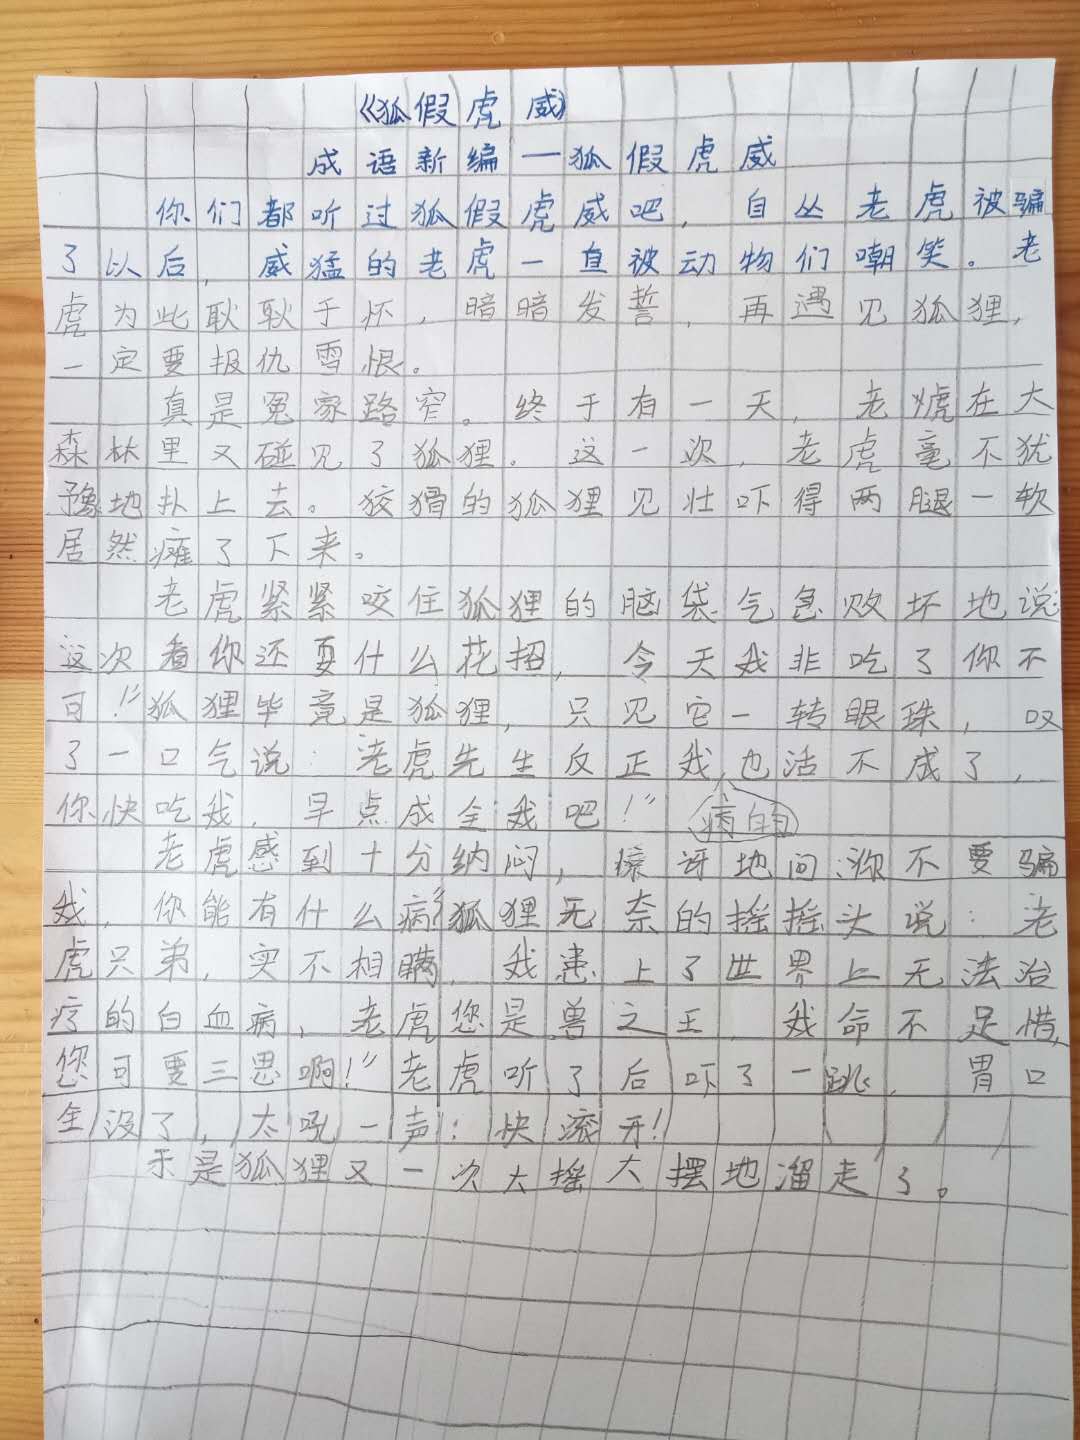 《狐假虎威》
成语新编一狐假虎威
你们都听过狐假虎威吧,自丛老虎被骗
了以后,威猛的老虎一直被动物们嘲笑。老
虎为此耿耿于怀,暗暗发誓,再遇见狐狸,
一定要报仇雪恨。
真是冤家路窄。终于有一天,老虎在大
森林里又碰见了狐狸。这一次,老虎毫不犹
豫地扑上去。狡猾的狐狸见壮吓得两腿一软
居然瘫了下来。
老虎紧紧咬住狐狸的脑袋气急败坏地说:
这次看你还耍什么花招,今天我非吃了你不
可!”狐狸毕竟是狐狸,只见它一转眼珠,叹
了一口气说:老虎先生反正我也活不成了,
你快吃我,早点成全我吧!” 病的
老虎感到十分纳闷,惊讶地问:你不要骗
我,你能有什么病”狐狸无奈的摇摇头说:老
虎兄弟,实不相瞒,我患上了世界上无法治
疗的白血病,老虎您是兽之王,我命不足惜,
您可要三思啊!”老虎听了后吓了一跳,胃口
全没了,大吼一声:快滚开!
于是狐狸又一次大摇大摆地溜走了。